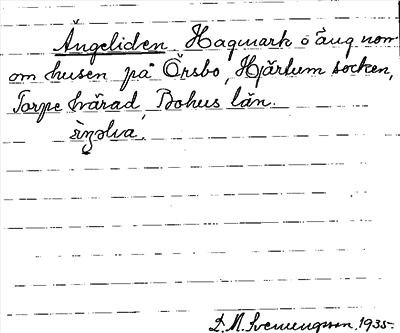 Ängeliden Hagmark o äng norr
om husen på Örsbo, Hjärtum socken,
Torpe härad, Bohus län.
D. A. Svenungsson, 1935.